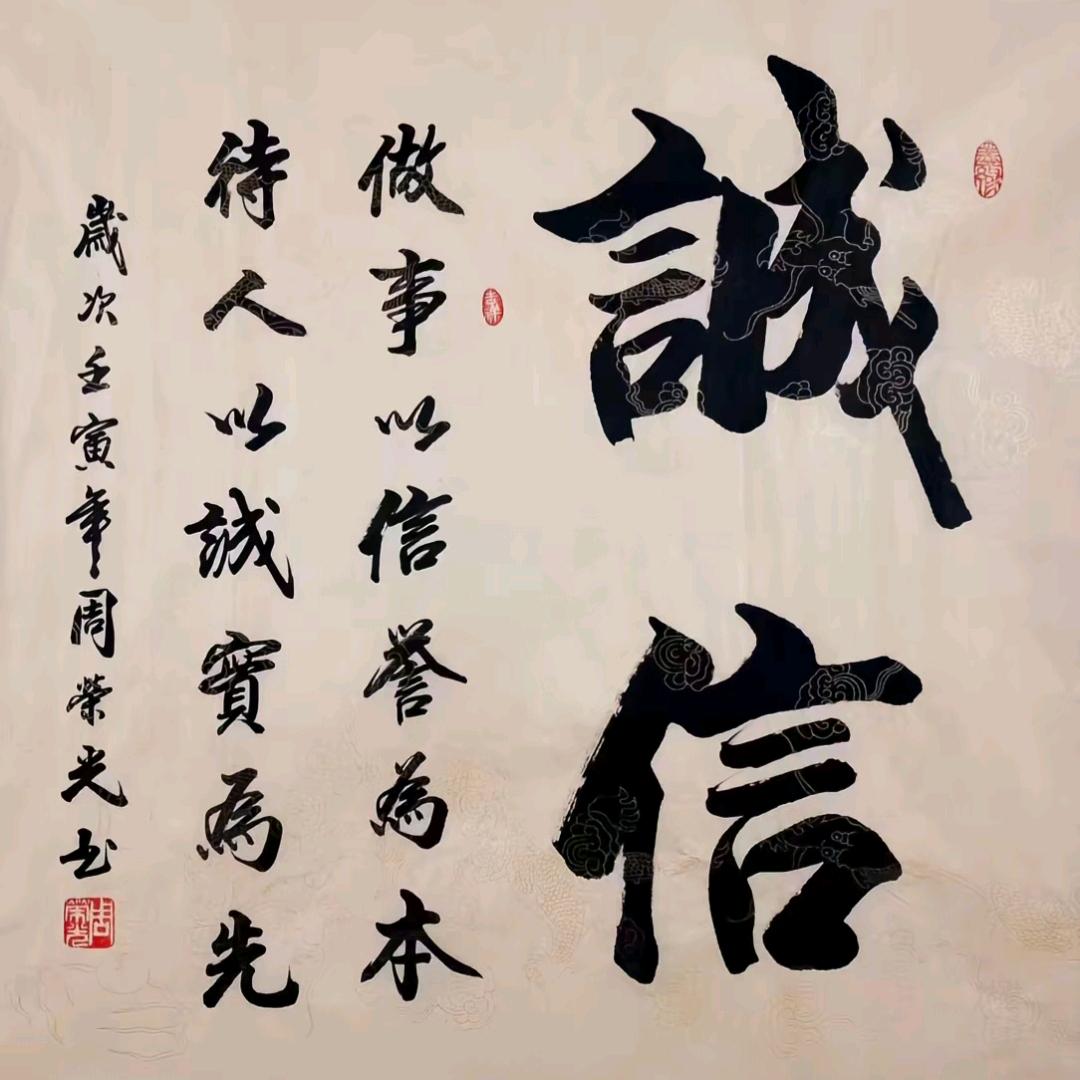 誠信
做事以信譽為本
待人以誠實為先
歲次壬寅年周榮光书
周榮光